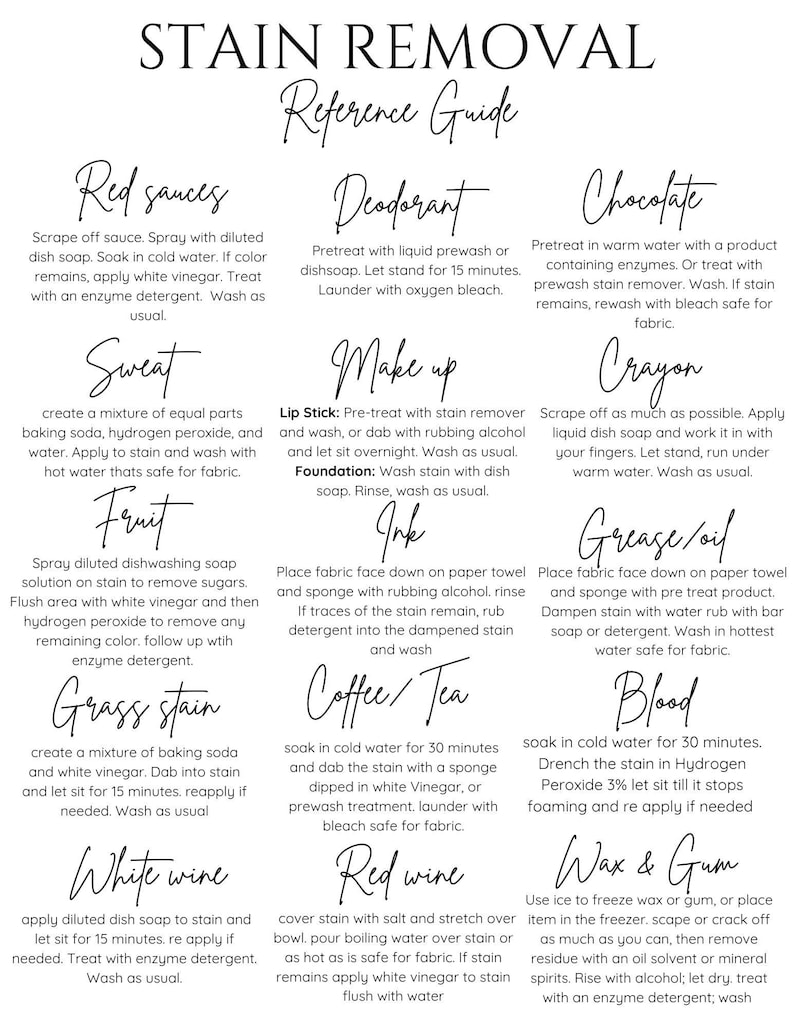 STAIN REMOVAL
Reference Guide
Red sauces
Scrape off sauce. Spray with diluted
dish soap. Soak in cold water. If color
remains, apply white vinegar. Treat
with an enzyme detergent. Wash as
usual.
Deodorant
Pretreat with liquid prewash or
dishsoap. Let stand for 15 minutes.
Launder with oxygen bleach.
Chocolate
Pretreat in warm water with a product
containing enzymes. Or treat with
prewash stain remover. Wash. If stain
remains, rewash with bleach safe for
fabric.
Sweat
create a mixture of equal parts
baking soda, hydrogen peroxide, and
water. Apply to stain and wash with
hot water thats safe for fabric.
Make up
Lip Stick: Pre-treat with stain remover
and wash, or dab with rubbing alcohol
and let sit overnight. Wash as usual.
Foundation: Wash stain with dish
soap. Rinse, wash as usual.
Crayon
Scrape off as much as possible. Apply
liquid dish soap and work it in with
your fingers. Let stand, run under
warm water. Wash as usual.
Fruit
Spray diluted dishwashing soap
solution on stain to remove sugars.
Flush area with white vinegar and then
hydrogen peroxide to remove any
remaining color. follow up wtih
enzyme detergent.
Ink
Place fabric face down on paper towel
and sponge with rubbing alcohol. rinse
If traces of the stain remain, rub
detergent into the dampened stain
and wash
Grease/oil
Place fabric face down on paper towel
and sponge with pre treat product.
Dampen stain with water rub with bar
soap or detergent. Wash in hottest
water safe for fabric.
Grass stain
create a mixture of baking soda
and white vinegar. Dab into stain
and let sit for 15 minutes. reapply if
needed. Wash as usual
Coffee/ Tea
soak in cold water for 30 minutes
and dab the stain with a sponge
dipped in white Vinegar, or
prewash treatment. launder with
bleach safe for fabric.
Blood
soak in cold water for 30 minutes.
Drench the stain in Hydrogen
Peroxide 3% let sit till it stops
foaming and re apply if needed
White wine
apply diluted dish soap to stain and
let sit for 15 minutes. re apply if
needed. Treat with enzyme detergent.
Wash as usual.
Red wine
cover stain with salt and stretch over
bowl. pour boiling water over stain or
as hot as is safe for fabric. If stain
remains apply white vinegar to stain
flush with water
Wax & Gum
Use ice to freeze wax or gum, or place
item in the freezer. scape or crack off
as much as you can, then remove
residue with an oil solvent or mineral
spirits. Rise with alcohol; let dry. treat
with an enzyme detergent; wash